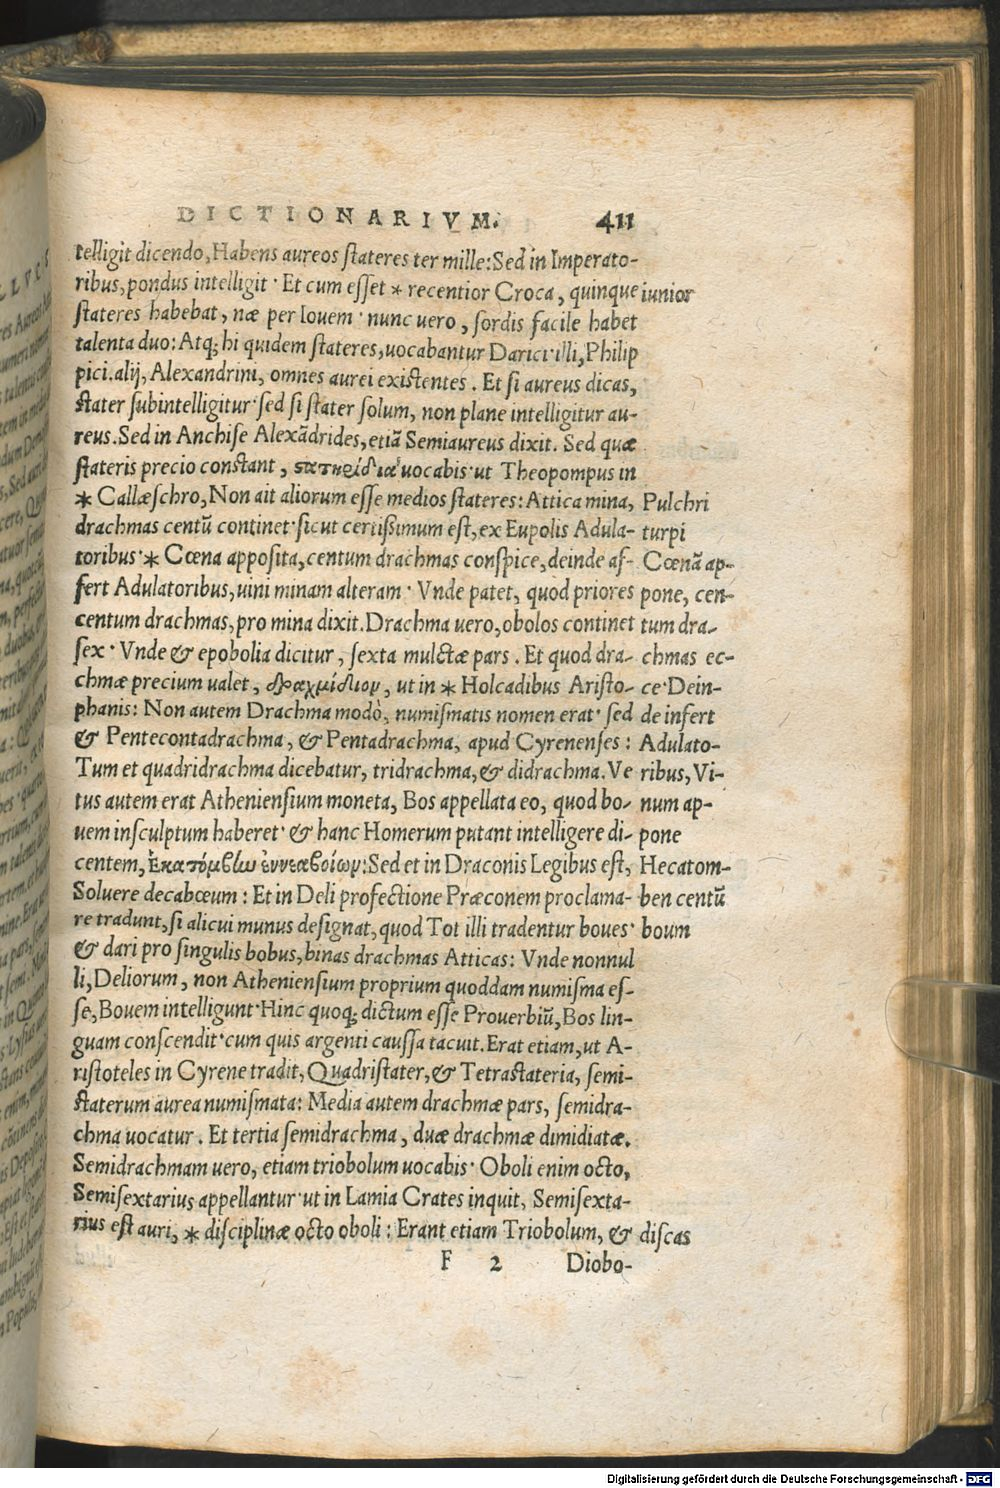 DICTIONARIVM. 411
telligit dicendo, Habens aureos stateres ter mille: Sed in Imperato-
ribus, pondus intelligit · Et cum esset * recentior Croca, quinque iunior
stateres habebat, næ per Iouem · nunc uero, sordis facile habet
talenta duo: Atq; hi quidem stateres, uocabantur Darici illi, Philip
pici. alij, Alexandrini, omnes aurei existentes. Et si aureus dicas,
stater subintelligitur · sed si stater solum, non plane intelligitur au-
reus. Sed in Anchise Alexãdrides, etiã Semiaureus dixit. Sed quæ
stateris precio constant, uocabis · ut Theopompus in
* Callæschro, Non ait aliorum esse medios stateres: Attica mina, Pulchri
drachmas centũ continet · sicut certissimum est, ex Eupolis Adula- turpi
toribus · * Cœna apposita, centum drachmas conspice, deinde af- Cœnã ap-
fert Adulatoribus, uini minam alteram · Vnde patet, quod priores pone, cen-
centum drachmas, pro mina dixit. Drachma uero, obolos continet tum dra-
sex · Vnde & epobolia dicitur, sexta mulctæ pars. Et quod dra- chmas ec-
chmæ precium ualet, δραχμίδιον, ut in * Holcadibus Aristo- ce · Dein-
phanis: Non autem Drachma modò, numismatis nomen erat · sed de infert
& Pentecontadrachma, & Pentadrachma, apud Cyrenenses: Adulato-
Tum et quadridrachma dicebatur, tridrachma, & didrachma. Ve ribus, Vi-
tus autem erat Atheniensium moneta, Bos appellata eo, quod bo- num ap-
uem insculptum haberet · & hanc Homerum putant intelligere di- pone
centem, ἑκατόμβων ἐννεαβοίων: Sed et in Draconis Legibus est, Hecatom-
Soluere decabœum: Et in Deli profectione Præconem proclama- ben centũ
re tradunt, si alicui munus designat, quod Tot illi tradentur boues · boum
& dari pro singulis bobus, binas drachmas Atticas: Vnde nonnul
li, Deliorum, non Atheniensium proprium quoddam numisma es-
se, Bouem intelligunt · Hinc quoq; dictum esse Prouerbiũ, Bos lin-
guam conscendit · cum quis argenti caussa tacuit. Erat etiam, ut A-
ristoteles in Cyrene tradit, Quadristater, & Tetrastateria, semi-
staterum aurea numismata: Media autem drachmæ pars, semidra-
chma uocatur. Et tertia semidrachma, duæ drachmæ dimidiatæ.
Semidrachmam uero, etiam triobolum uocabis · Oboli enim octo,
Semisextarius appellantur · ut in Lamia Crates inquit, Semisexta-
rius est auri, * disciplinæ octo oboli: Erant etiam Triobolum, & discas
F 2 Diobo-
Digitalisierung gefördert durch die Deutsche Forschungsgemeinschaft - DFG